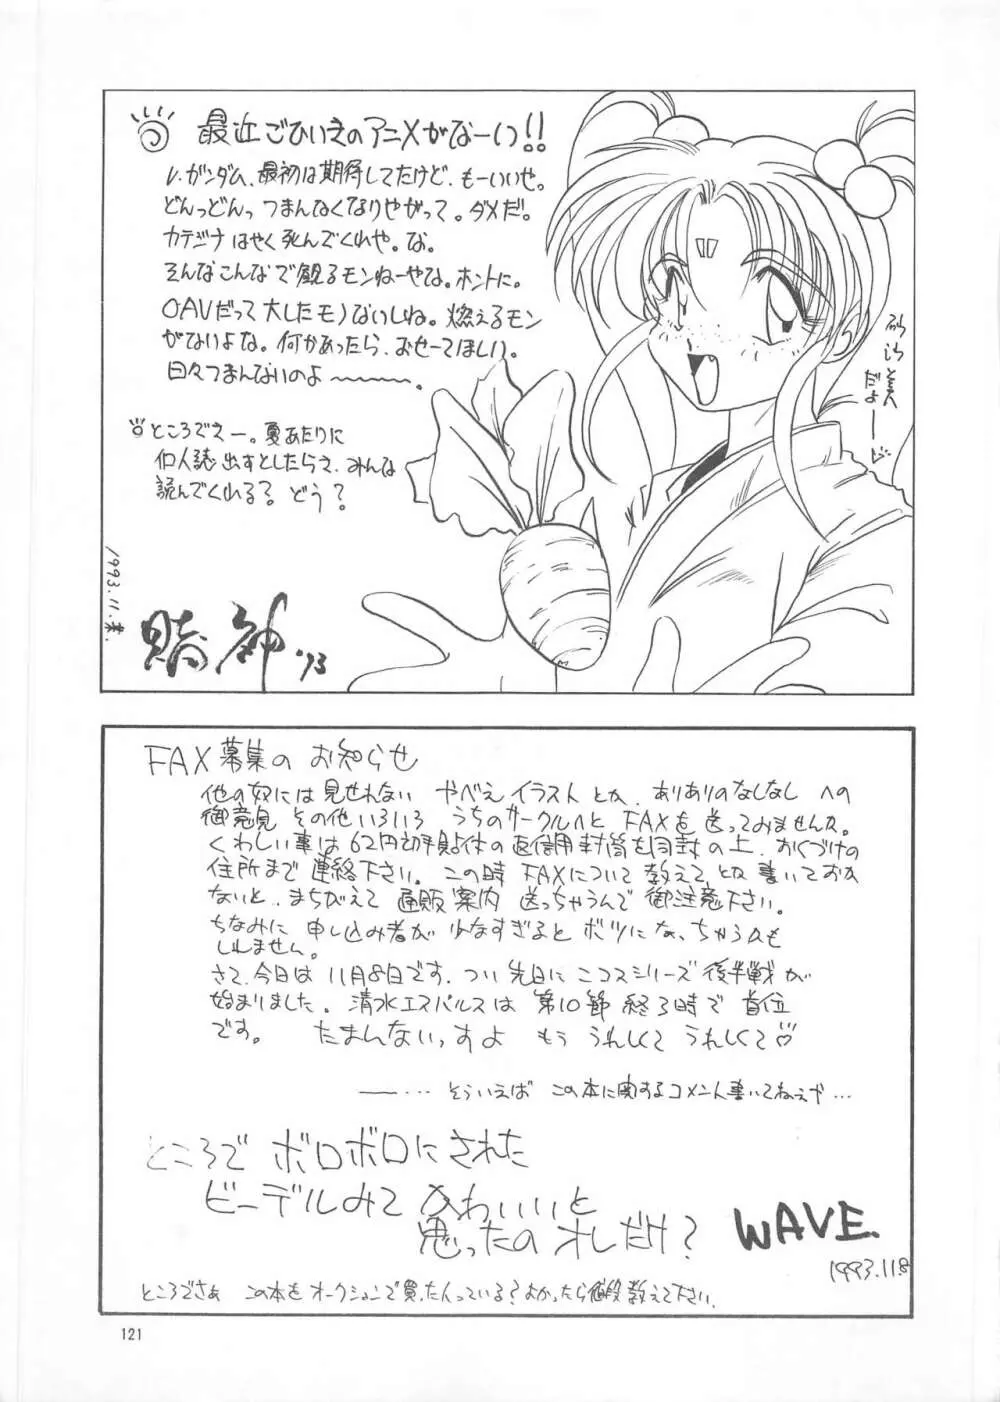 最近ごひいきのアニメがなーいっ!!
V.ガンダム、最初は期待してたけど、もーいいぜ。
どんっどんっつまんなくなりやがって。ダメだ。
カテジナはやく死んでくれや。な。
そんなこんなで観るモンねーやな。ホントに。
OAVだって大したモノないしね。燃えるモン
がないよな。何かあったら、おせーてほしい。
日々つまんないのよ〜〜〜。
ところでえー。夏あたりに
個人誌出すとしたらさ、みんな
読んでくれる？どう？
1993.11.末.
賭神 '93
砂沙美
だよー
FAX募集のお知らせ
他の奴には見せれない やべえイラストとか、ありありのなしなし への
御意見 その他いろいろ うちのサークルへと FAXを送ってみませんか。
くわしい事は62円切手貼付の返信用封筒を同封の上、おくづけの
住所まで連絡下さい。この時 FAXについて教えて とか書いておか
ないと、まちがえて 通販案内 送っちゃうんで 御注意下さい。
ちなみに 申し込み者が 少なすぎると ボツになっちゃうかも
しれません。
さて、今日は 11月8日です。つい先日にニコスシリーズ後半戦が
始まりました。清水エスパルスは 第10節終了時で 首位
です。 たまんないっすよ もう うれしくて うれしくて♡
——… そういえば この本に関するコメント書いてねえや…
ところで ボロボロにされた
ビーデルみて かわいいと
思ったのオレだけ？
WAVE.
1993.11.8
ところでさあ この本をオークションで買った人っている？よかったら値段教えて下さい。
121